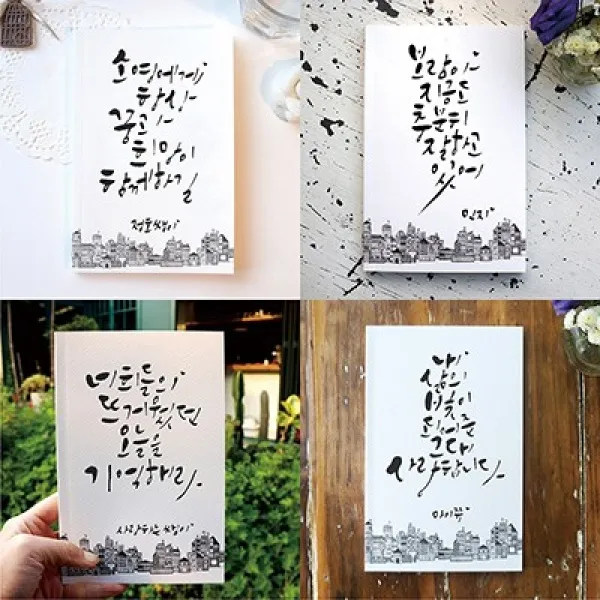 소영에게
항상
꿈과
희망이
함께하길
정호쌤이
보람아
지금도
충분히
잘하고
있어
민지
너희들의
뜨거웠던
오늘을
기억해라
사랑하는 쌤이
내
삶의
빛이
되어준
그대
사랑합니다